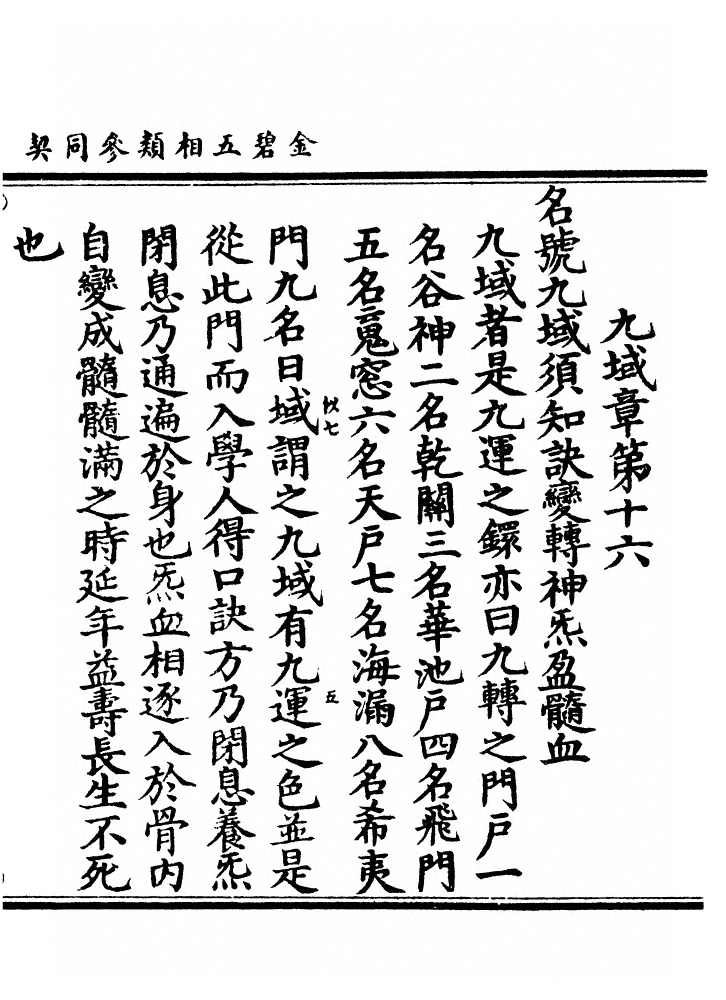 金碧五相類參同契
九域章第十六
名號九域須知訣變轉神炁盈髓血
九域者是九運之鐶亦曰九轉之門戶一
名谷神二名乾關三名華池戶四名飛門
五名䰟窓六名天戶七名海漏八名希夷
以七
五
門九名曰域謂之九域有九運之色並是
從此門而入學人得口訣方乃閉息養炁
閉息乃通遍於身也炁血相逐入於骨內
自變成髓髓滿之時延年益壽長生不死
也